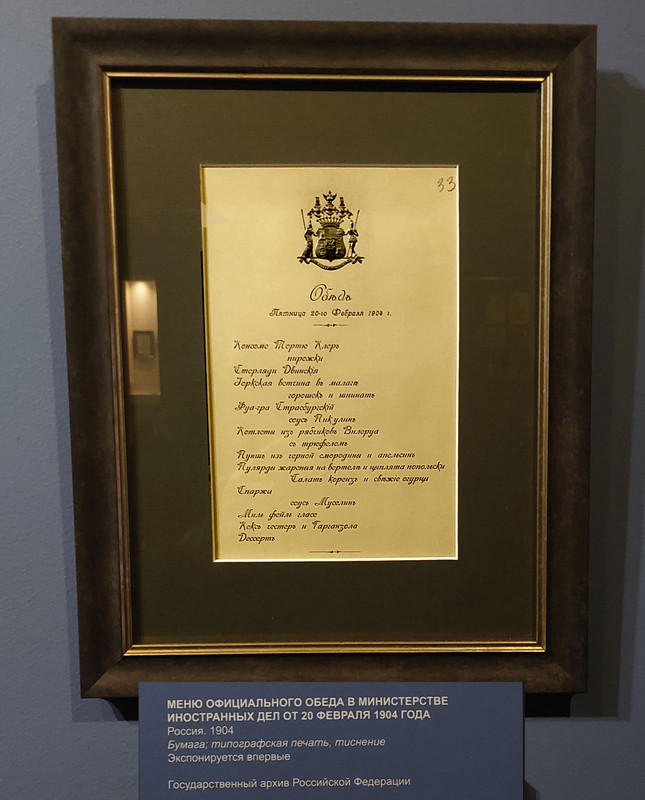 33
Обѣдъ
Пятница 20-го Февраля 1904 г.
Консоме Тортю Клеръ
пирожки
Стерляди Двинскія
Іоркская ветчина въ малагѣ
горошекъ и шпинатъ
Фуа-гра Страсбургскій
соусъ Пикулинъ
Котлеты изъ рябчиковъ Вилеруа
съ трюфелемъ
Пуншъ изъ черной смородины и апельсинъ
Пулярды жареныя на вертелѣ и цыплята попольски
Салатъ кореизъ и свѣжіе огурцы
Спаржа
соусъ Муселинъ
Миль фейль гласе
Кексъ честеръ и Гарганзола
Дессертъ
МЕНЮ ОФИЦИАЛЬНОГО ОБЕДА В МИНИСТЕРСТВЕ
ИНОСТРАННЫХ ДЕЛ ОТ 20 ФЕВРАЛЯ 1904 ГОДА
Россия. 1904
Бумага; типографская печать, тиснение
Экспонируется впервые
Государственный архив Российской Федерации